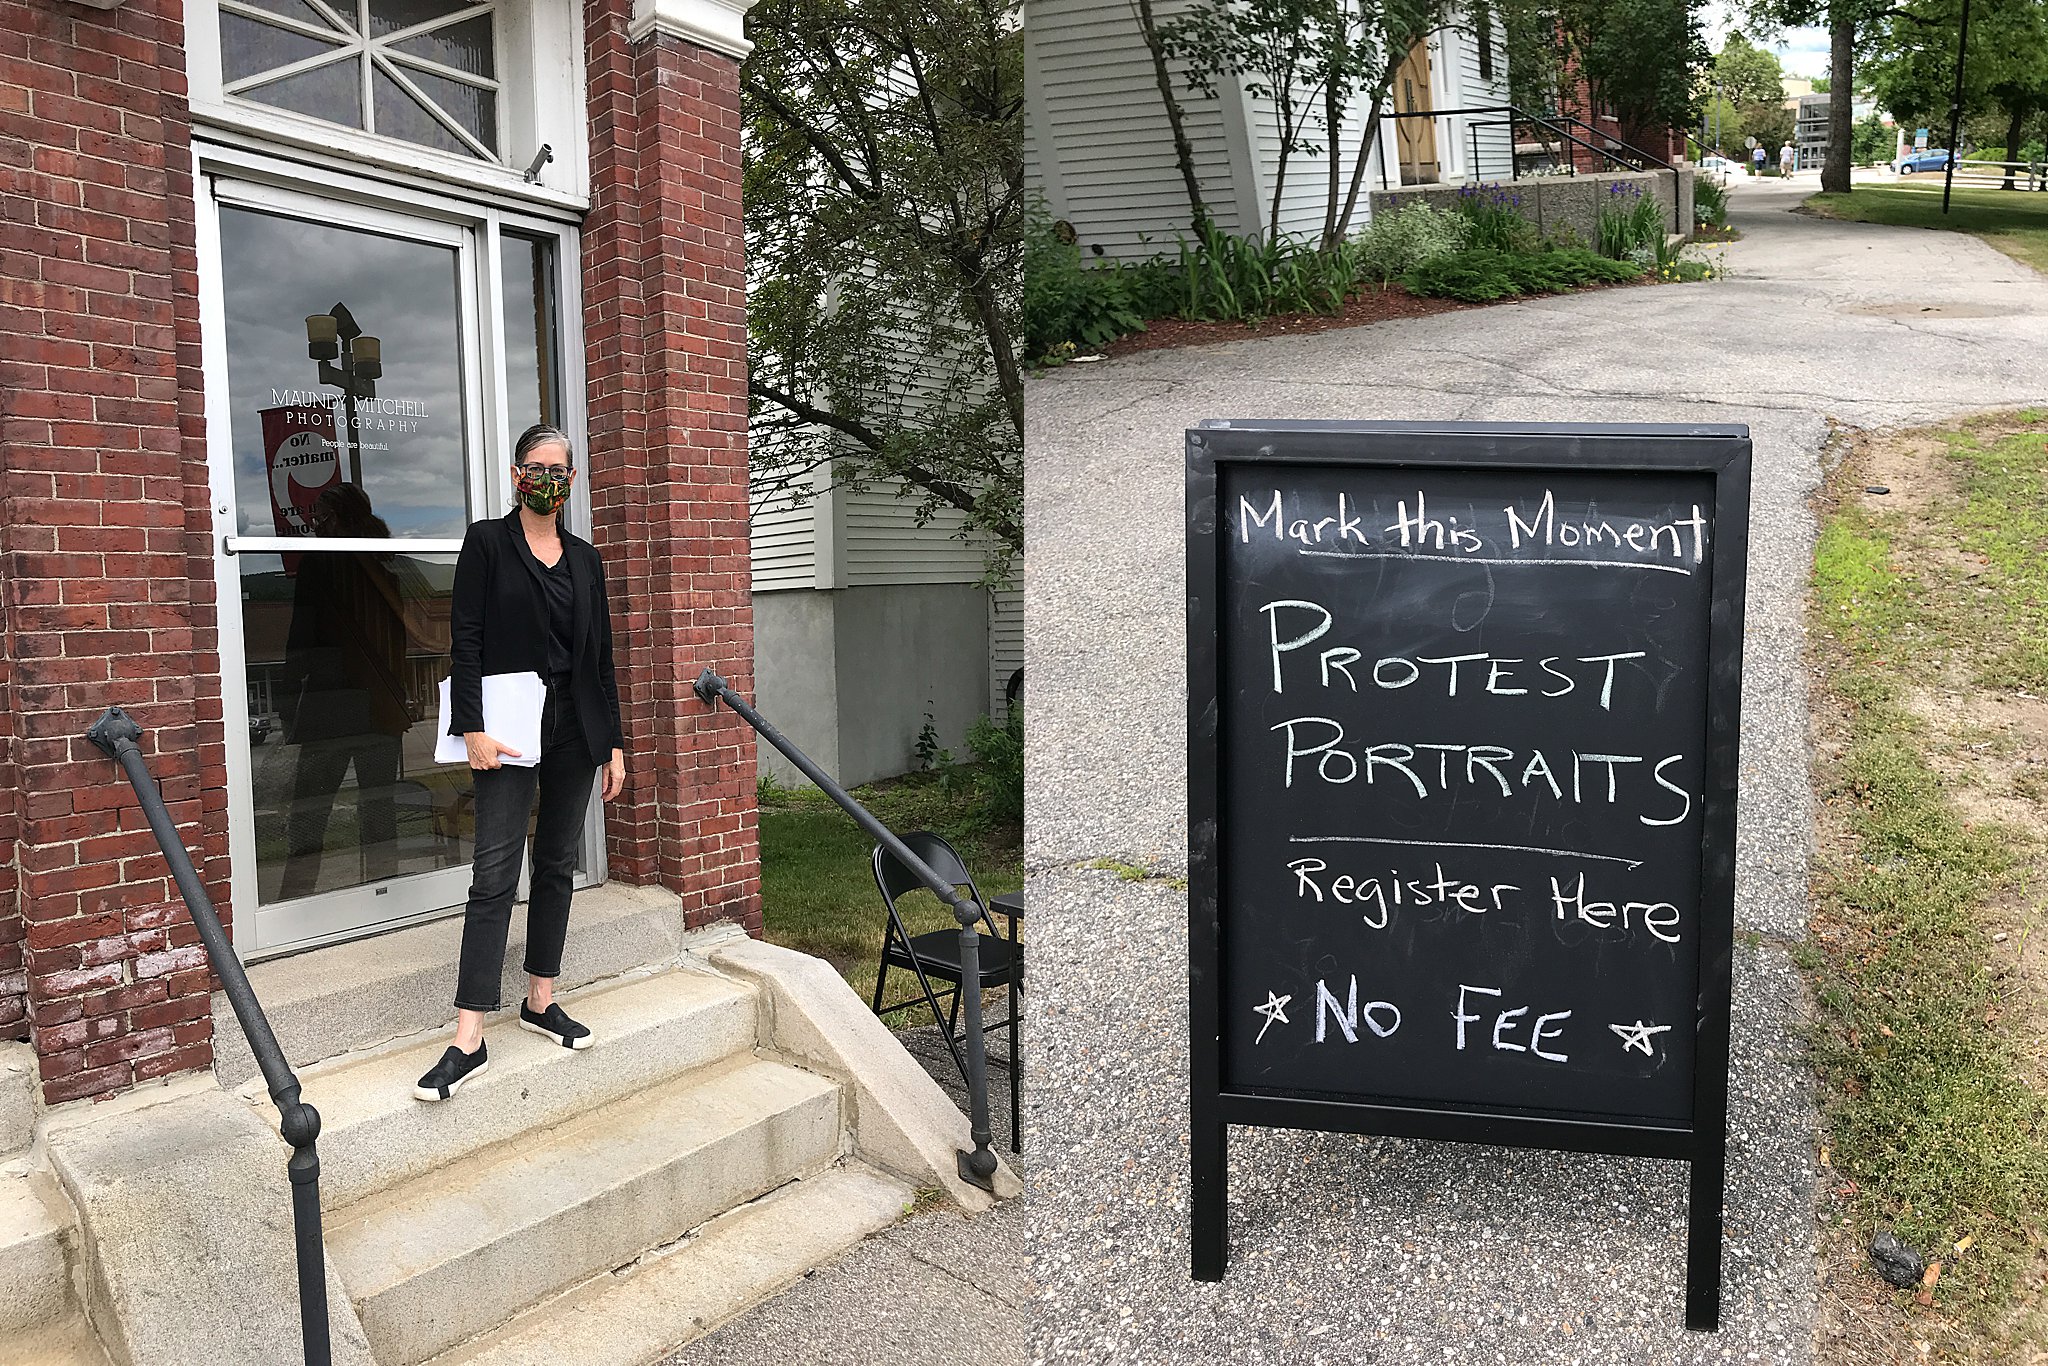 MAUNDY MITCHELL
PHOTOGRAPHY
People are beautiful.
No
matter...
Mark this Moment
PROTEST
PORTRAITS
Register Here
No FEE